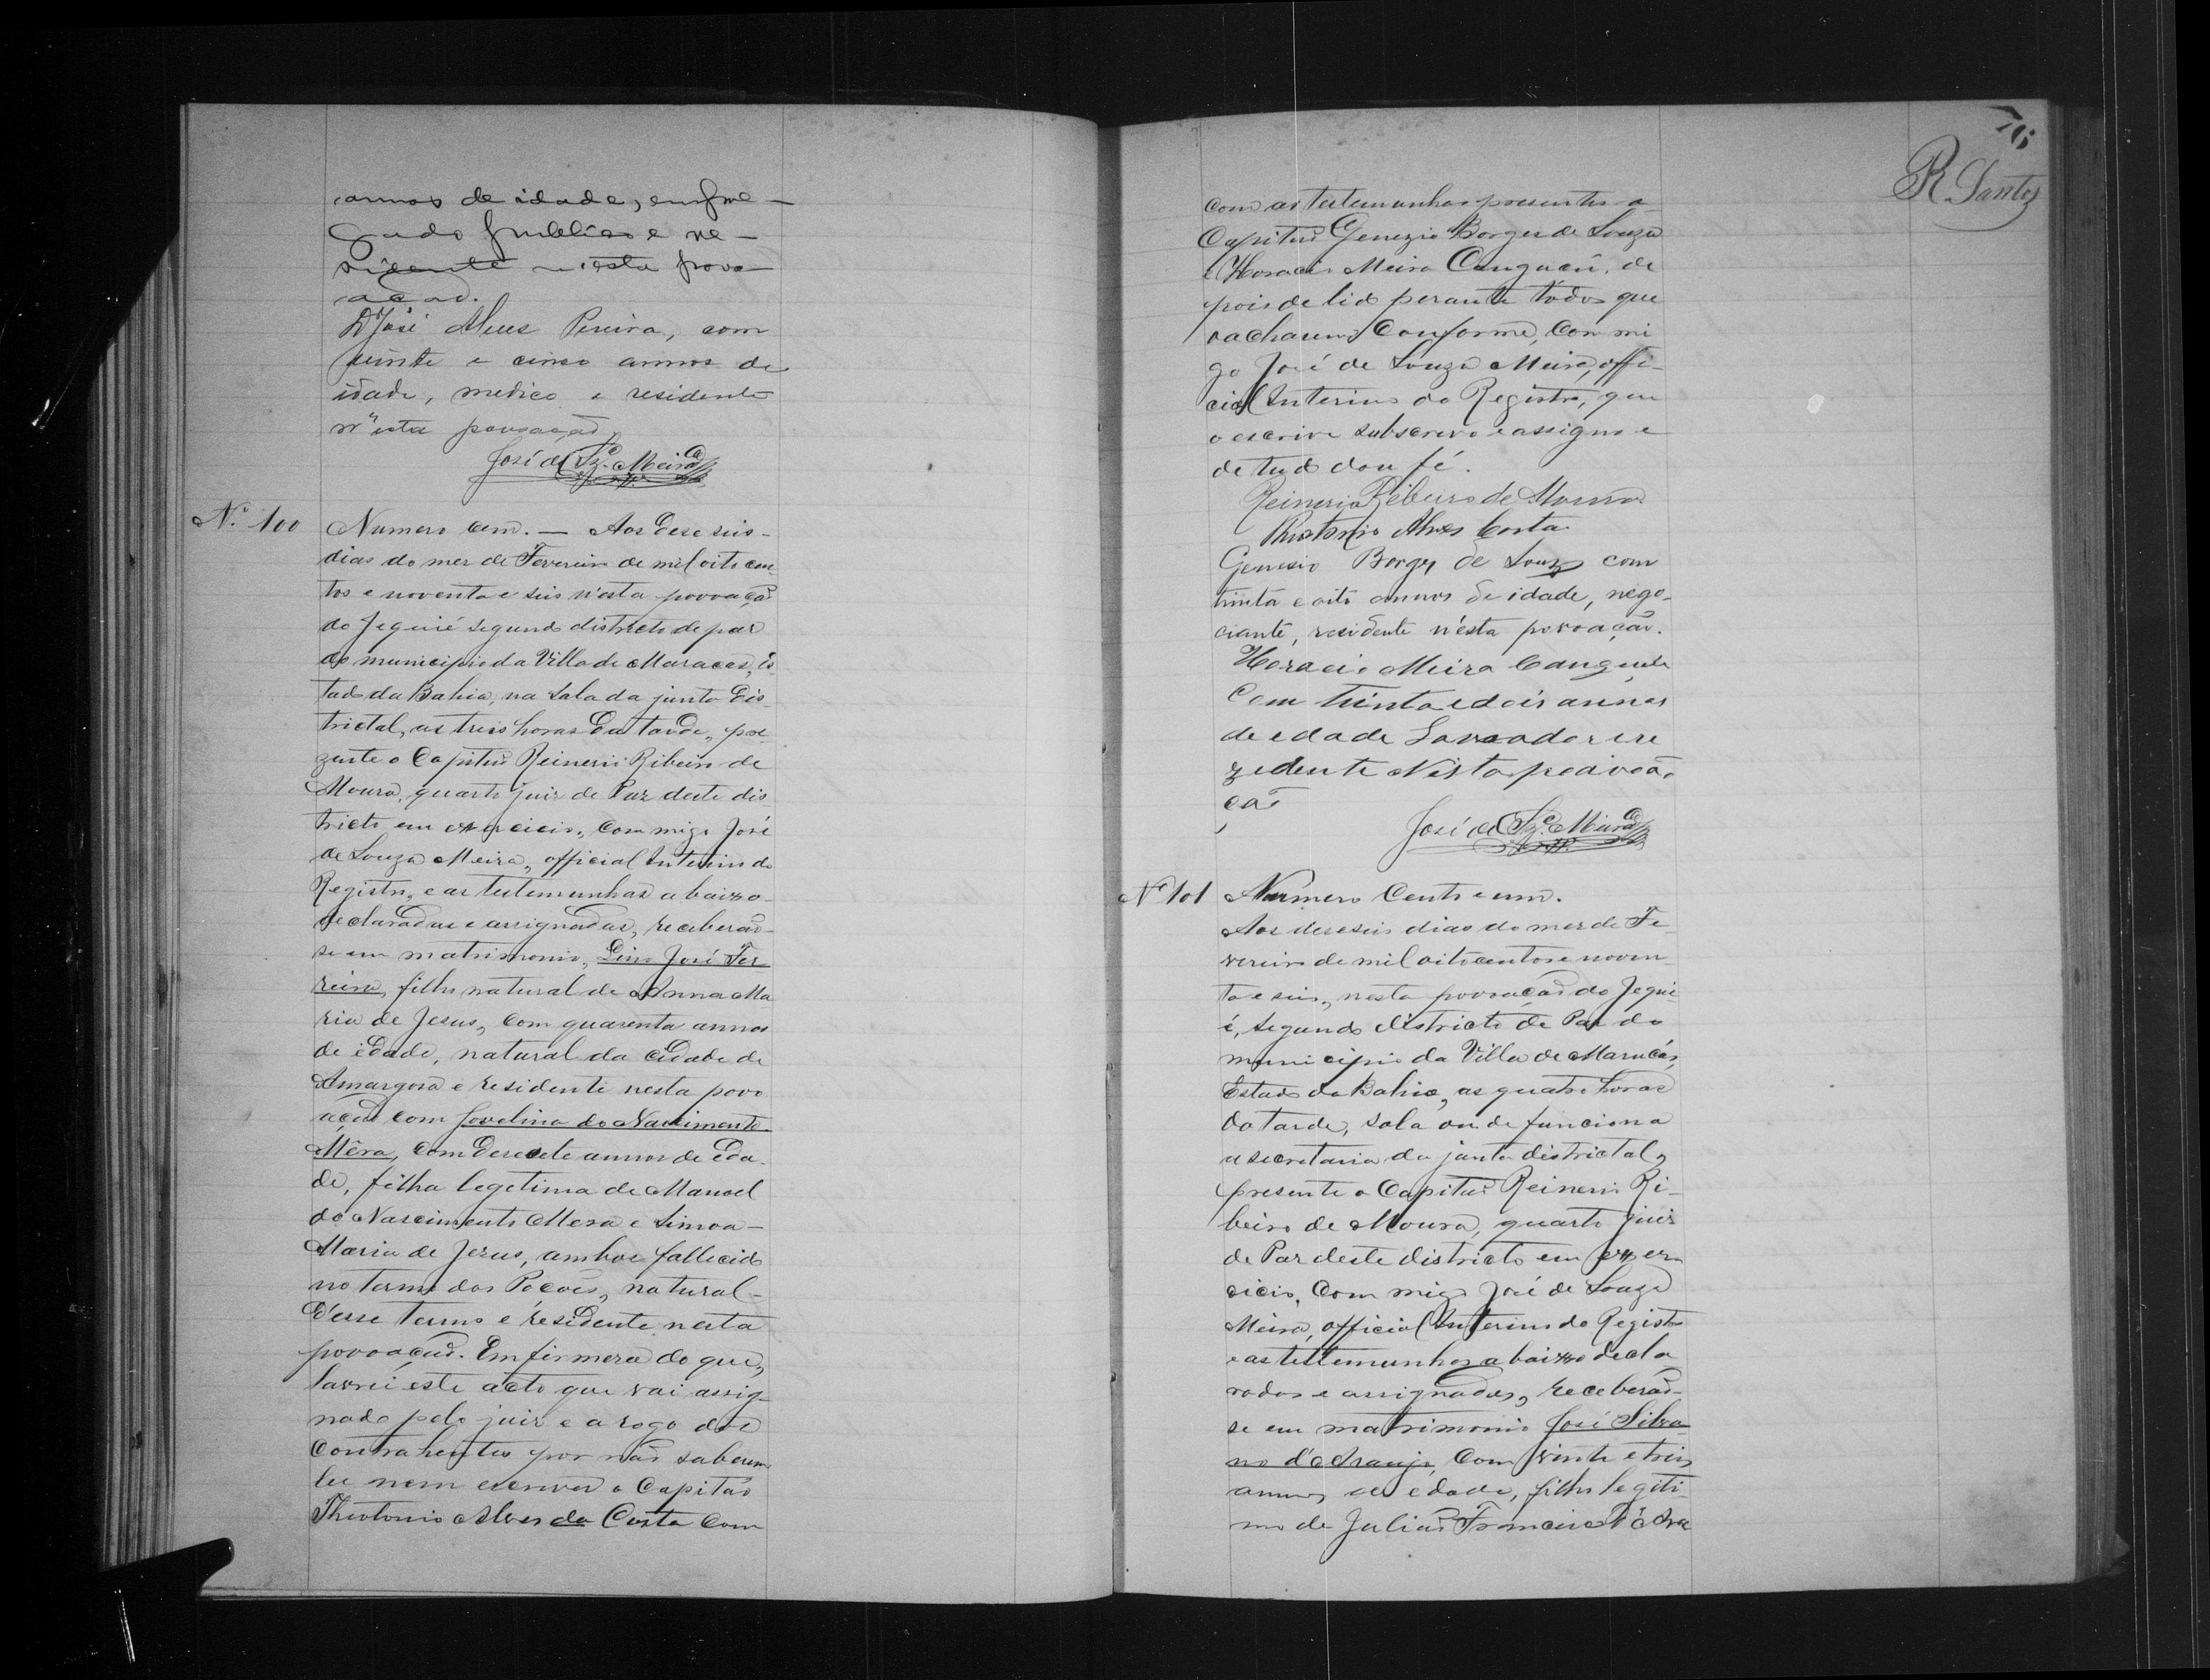 annos de idade, empre-
gado publico e re-
sidente n'esta povo-
açaõ.
Dr José Alves Pereira, com
vinte e cinco annos de
idade, medico e residente
n'esta povoaçaõ,
José de Sz.ª Meira
N.º 100
Numero cem. — Aos deseseis-
dias do mes de Fevereiro de mil oito cen-
tos e noventa e seis n'esta povoaçaõ
do Jequié segundo districto de paz
do municipio da Villa de Maracás, Es-
tado da Bahia, na sala da junta dis-
trictal, as tres horas da tarde, pre-
zente o Capitaõ Reinerio Ribeiro de
Moura, quarto juiz de Paz deste dis-
tricto em exercicio, com migo José
de Souza Meira, official Interino do
Registro, e as testemunhas abaixo-
declaradas e assignadas, receberaõ-
se em matrimonio, Lino José Fer
reira, filho natural de Anna Ma
ria de Jesus, com quarenta annos
de idade, natural da cidade de
Amargosa e residente nesta povo
açaõ com Jovelina do Nascimento
Mêra, com desesete annos de eda-
de, filha legetima de Manoel
do Nascimento Mera e Simoa-
Maria de Jezus, ambos fallecido
no termo dos Poções, natural-
d'esse termo e residente nesta
povoaçaõ. Em firmeza do que,
lavrei este acto que vai assig-
nado pelo juiz e a rogo dos
contrahentes por não saberem
ler nem escrever o Capitaõ
Theotonio Alves da Costa com
76
R. Santos
com as testemunhas presentes o
Capitaõ Genezio Borges de Souza
e Horacio Meira Cangucú, de
pois de lido perante todos que
o acharem conforme, com mi
go José de Souza Meira, offi-
cial Interino do Registro, que
o escrivi subscrevo e assigno e
de tudo dou fé.
Reinerio Ribeiro de Moura
Theotonio Alves Costa
Genesio Borges de Souza com
trinta e oito annos de idade, nego-
ciante, residente n'esta povoação.
Horacio Meira Canguçu
Com trinta e dois annos
de edade Lavrador e re
zedente Nesta poavoa
çaõ
José de Sz.ª Meira
Nº 101
Numero Cento e um.
Aos deseseis dias do mes de Fe-
vereiro de mil oito centos e noven-
ta e seis, nesta povoaçaõ do Jequi
é, segundo districto de Paz do
municipio da Villa de Maracás,
Estado da Bahia, as quatro horas
da tarde, sala onde funciona
a secretaria da junta districtal,
presente o Capitaõ Reinerio Ri-
beiro de Moura, quarto juiz
de Paz deste districto em exer
cicio, com migo José de Souza
Meira, official Interino do Registro
e as testemunhas abaixo decla
rados e assignados, receberaõ-
se em matrimonio José Silva-
no d'Araujo, com vinte e tres
annos de edade, filho legiti-
mo de Juliaõ Francisco d'Ara